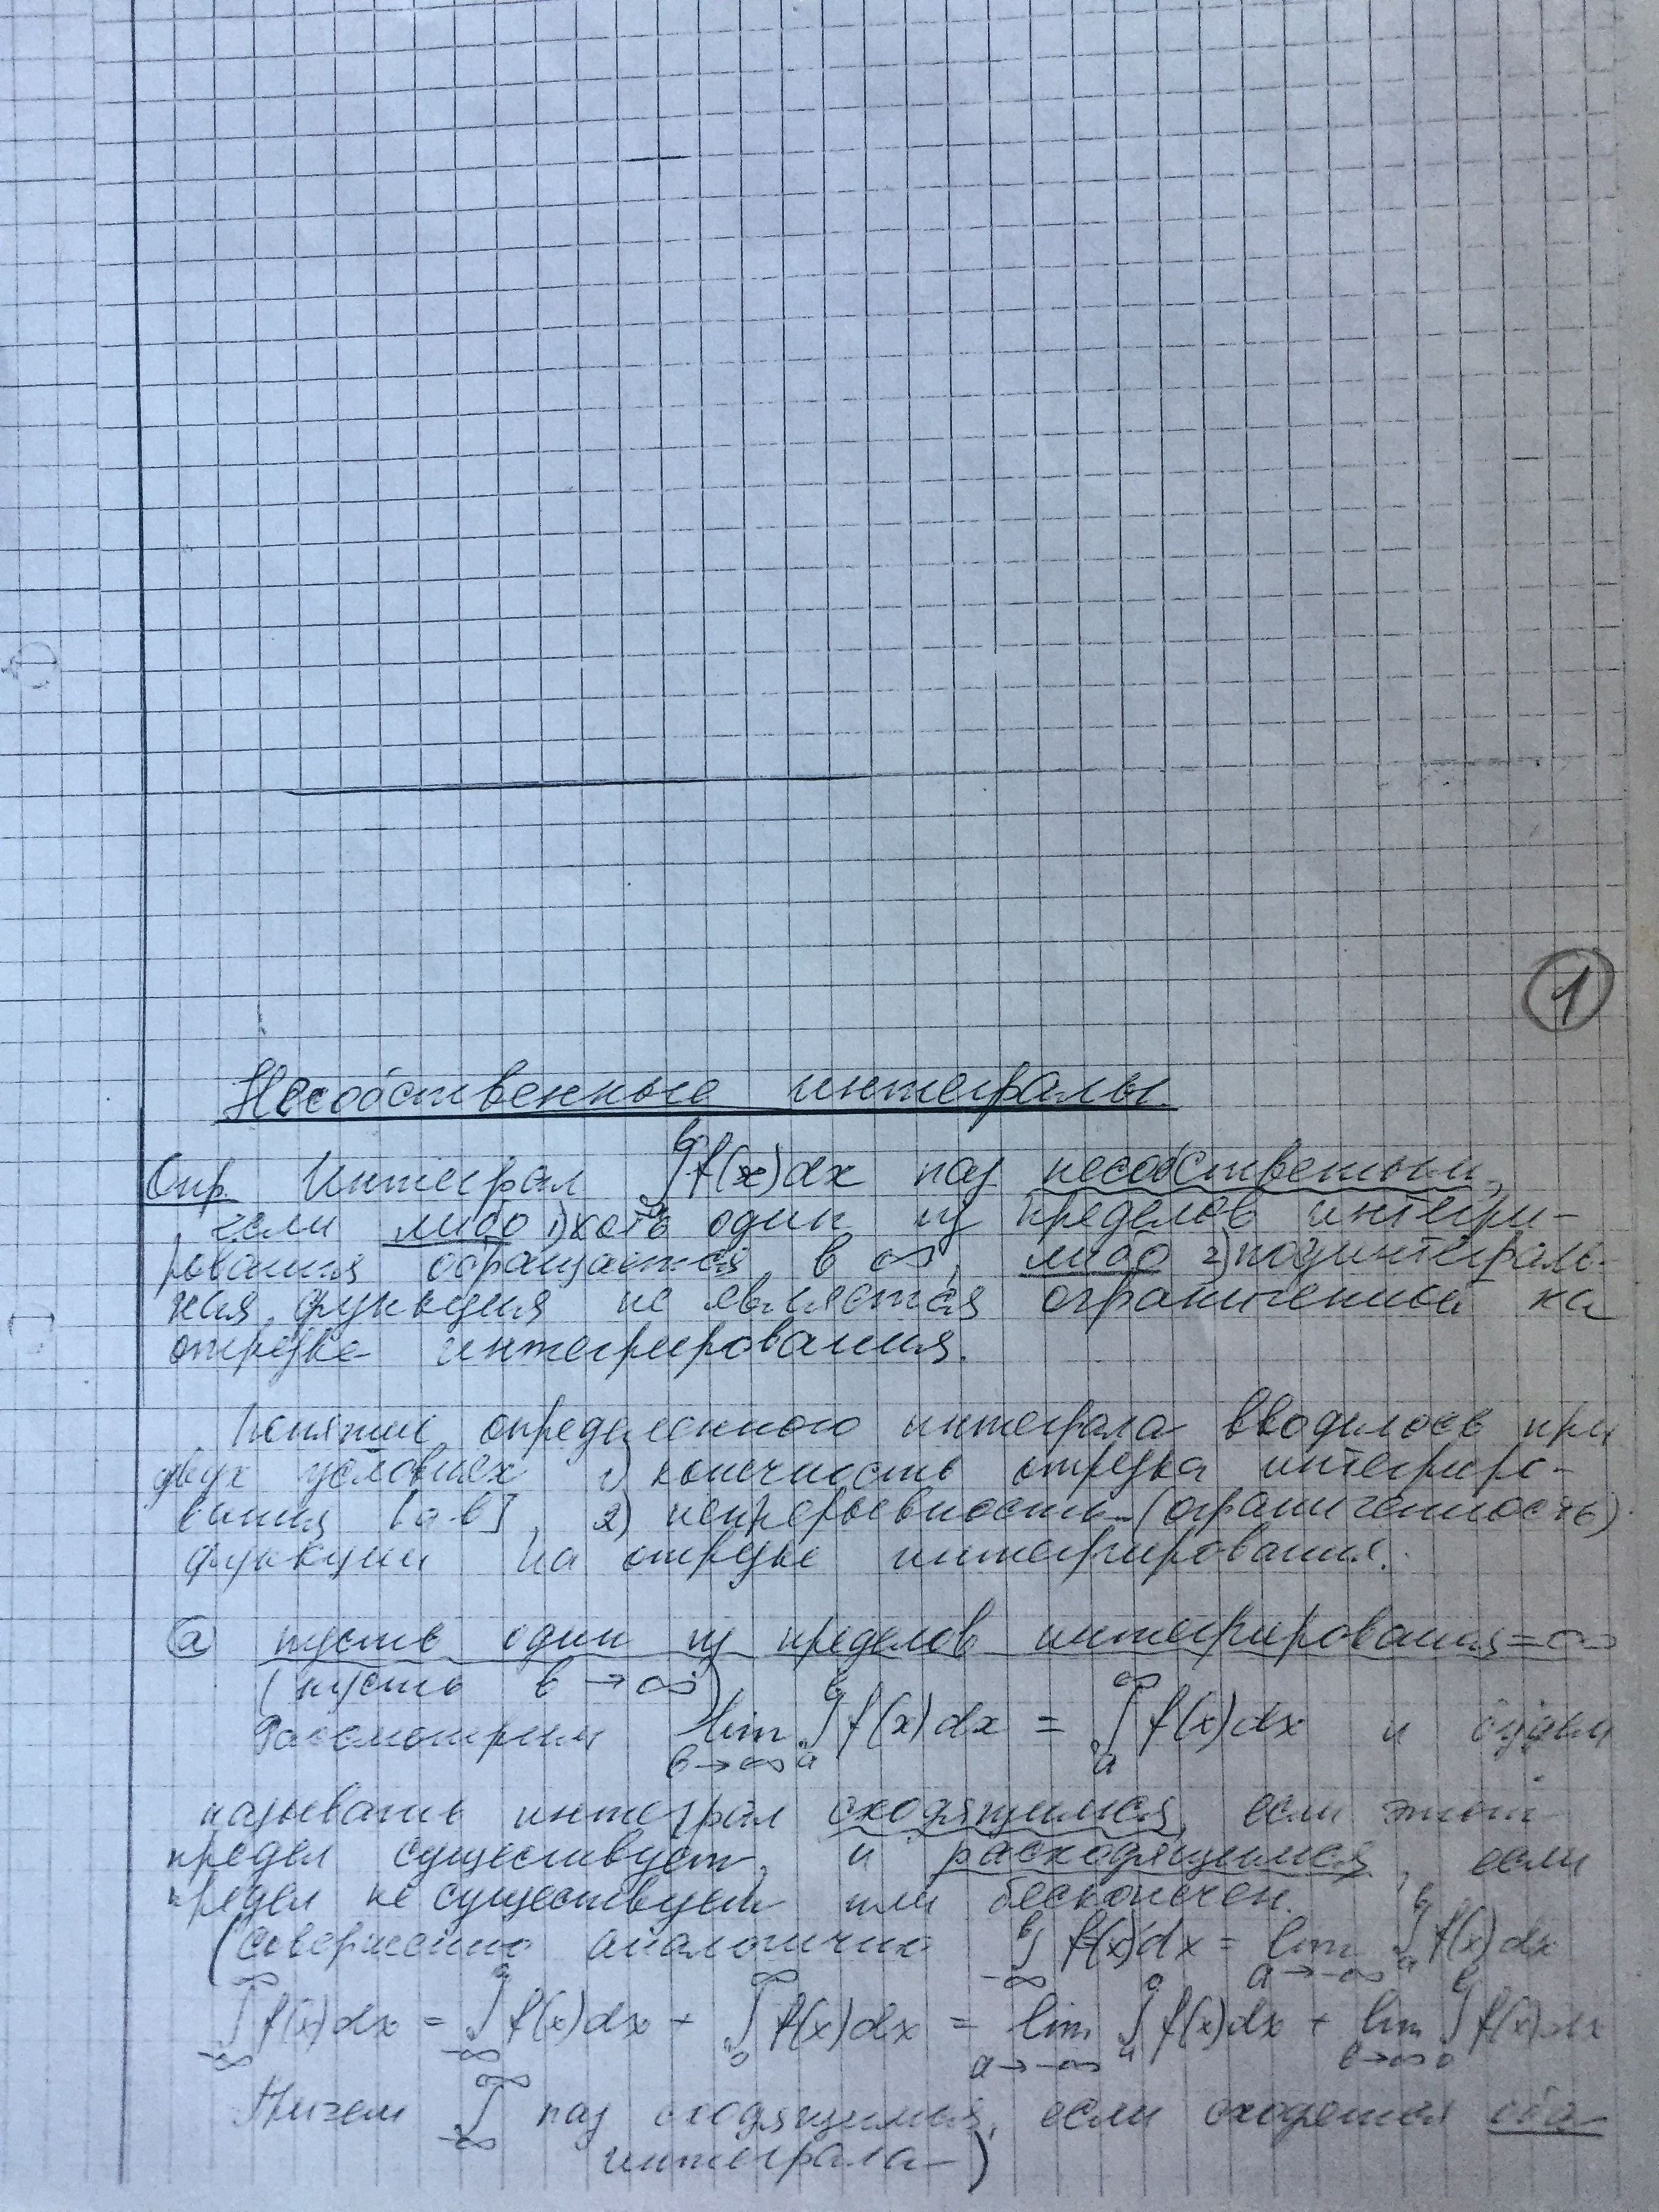 1
Несобственные интегралы.
Опр. Интеграл ∫_a^b f(x)dx наз несобственным,
если либо 1) хоть один из пределов интегри-
рования обращается в ∞, либо 2) подинтеграль-
ная функция не является ограниченной на
отрезке интегрирования.
Понятие определенного интеграла вводилось при
двух условиях 1) конечность отрезка интегриро-
вания [a b], 2) непрерывность (ограниченность)
функции на отрезке интегрирования.
a пусть один из пределов интегрирования = ∞
(пусть b → ∞)
Рассмотрим lim_{b→∞} ∫_a^b f(x)dx = ∫_a^∞ f(x)dx и будем
называть интеграл сходящимся, если этот
предел существует, и расходящимся, если
предел не существует или бесконечен.
(Совершенно аналогично ∫_{-∞}^b f(x)dx = lim_{a→-∞} ∫_a^b f(x)dx
∫_{-∞}^∞ f(x)dx = ∫_{-∞}^0 f(x)dx + ∫_0^∞ f(x)dx = lim_{a→-∞} ∫_a^0 f(x)dx + lim_{b→∞} ∫_0^b f(x)dx
Причем ∫_{-∞}^∞ наз сходящимся, если сходятся оба
интеграла)